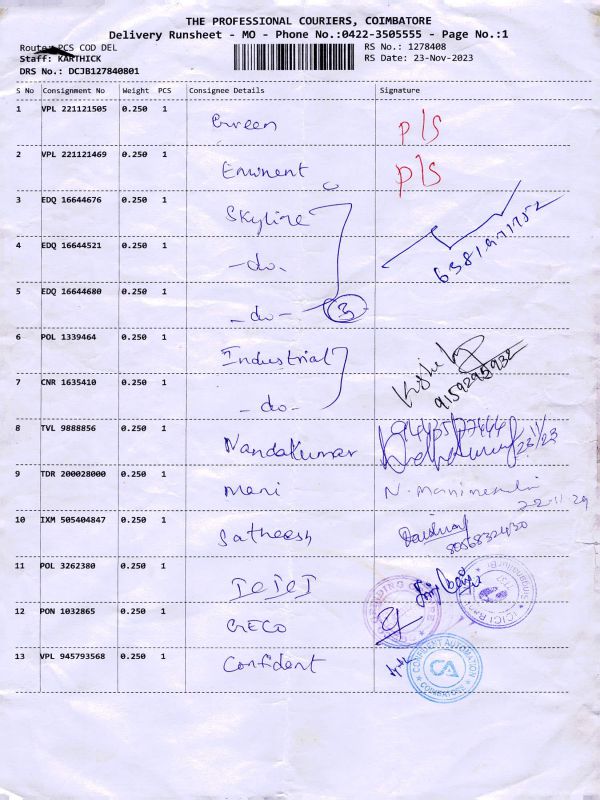 THE PROFESSIONAL COURIERS, COIMBATORE
Delivery Runsheet - MO - Phone No.:0422-3505555 - Page No.:1
Route: PCS COD DEL
RS No.: 1278408
Staff: KARTHICK
RS Date: 23-Nov-2023
DRS No.: DCJB127840801
S No Consignment No Weight PCS Consignee Details Signature
1 VPL 221121505 0.250 1 Green P/S
2 VPL 221121469 0.250 1 Eminent P/S
3 EDQ 16644676 0.250 1 Skyline
4 EDQ 16644521 0.250 1 -do- 6381971752
5 EDQ 16644680 0.250 1 -do- 3
6 POL 1339464 0.250 1 Industrial
7 CNR 1635410 0.250 1 -do- 9159295932
8 TVL 9888856 0.250 1 Nandakumar
9 TDR 200028000 0.250 1 Mani
10 IXM 505404847 0.250 1 Satheesh 8056832430
11 POL 3262380 0.250 1 ICICI
12 PON 1032865 0.250 1 GECO
13 VPL 945793568 0.250 1 Confident
CONFIDENT AUTOMATION
CA
COIMBATORE